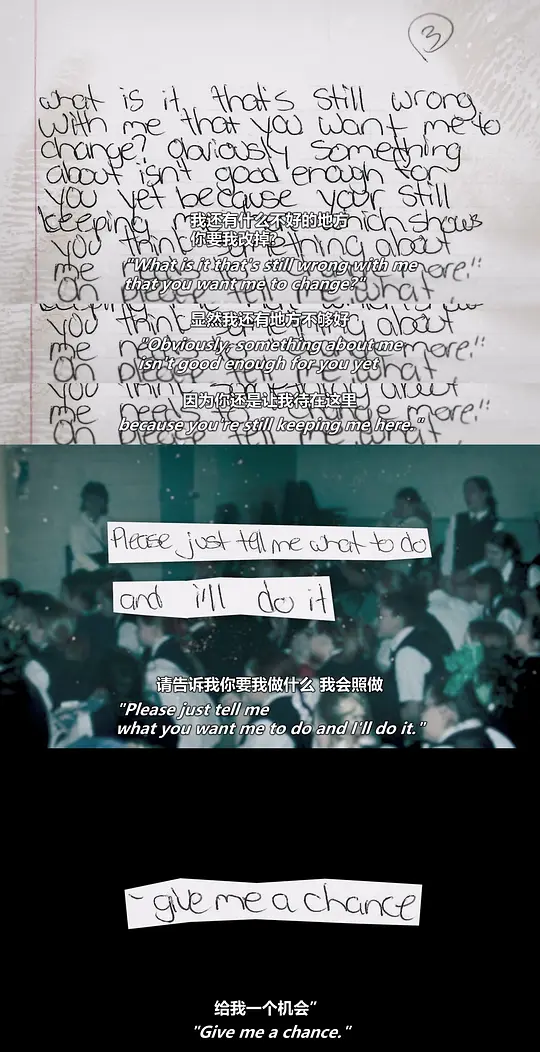 3
what is it, that's still wrong
with me that you want me to
change? Obviously something
about isn't good enough for
you yet because your still
keeping shows
我还有什么不好的地方
你要我改掉?
you think something about
"What is it that's still wrong with me
that you want me to change?"
me more!!
Oh please tell me what
you think about
显然我还有地方不够好
"Obviously, something about me
isn't good enough for you yet
me more!!
Oh please tell me what
you think something about
因为你还是让我待在这里
me need change more!!
because you're still keeping me here."
Oh please tell me what
Please just tell me what to do
and i'll do it
请告诉我你要我做什么 我会照做
"Please just tell me
what you want me to do and I'll do it."
- give me a chance
给我一个机会"
"Give me a chance."